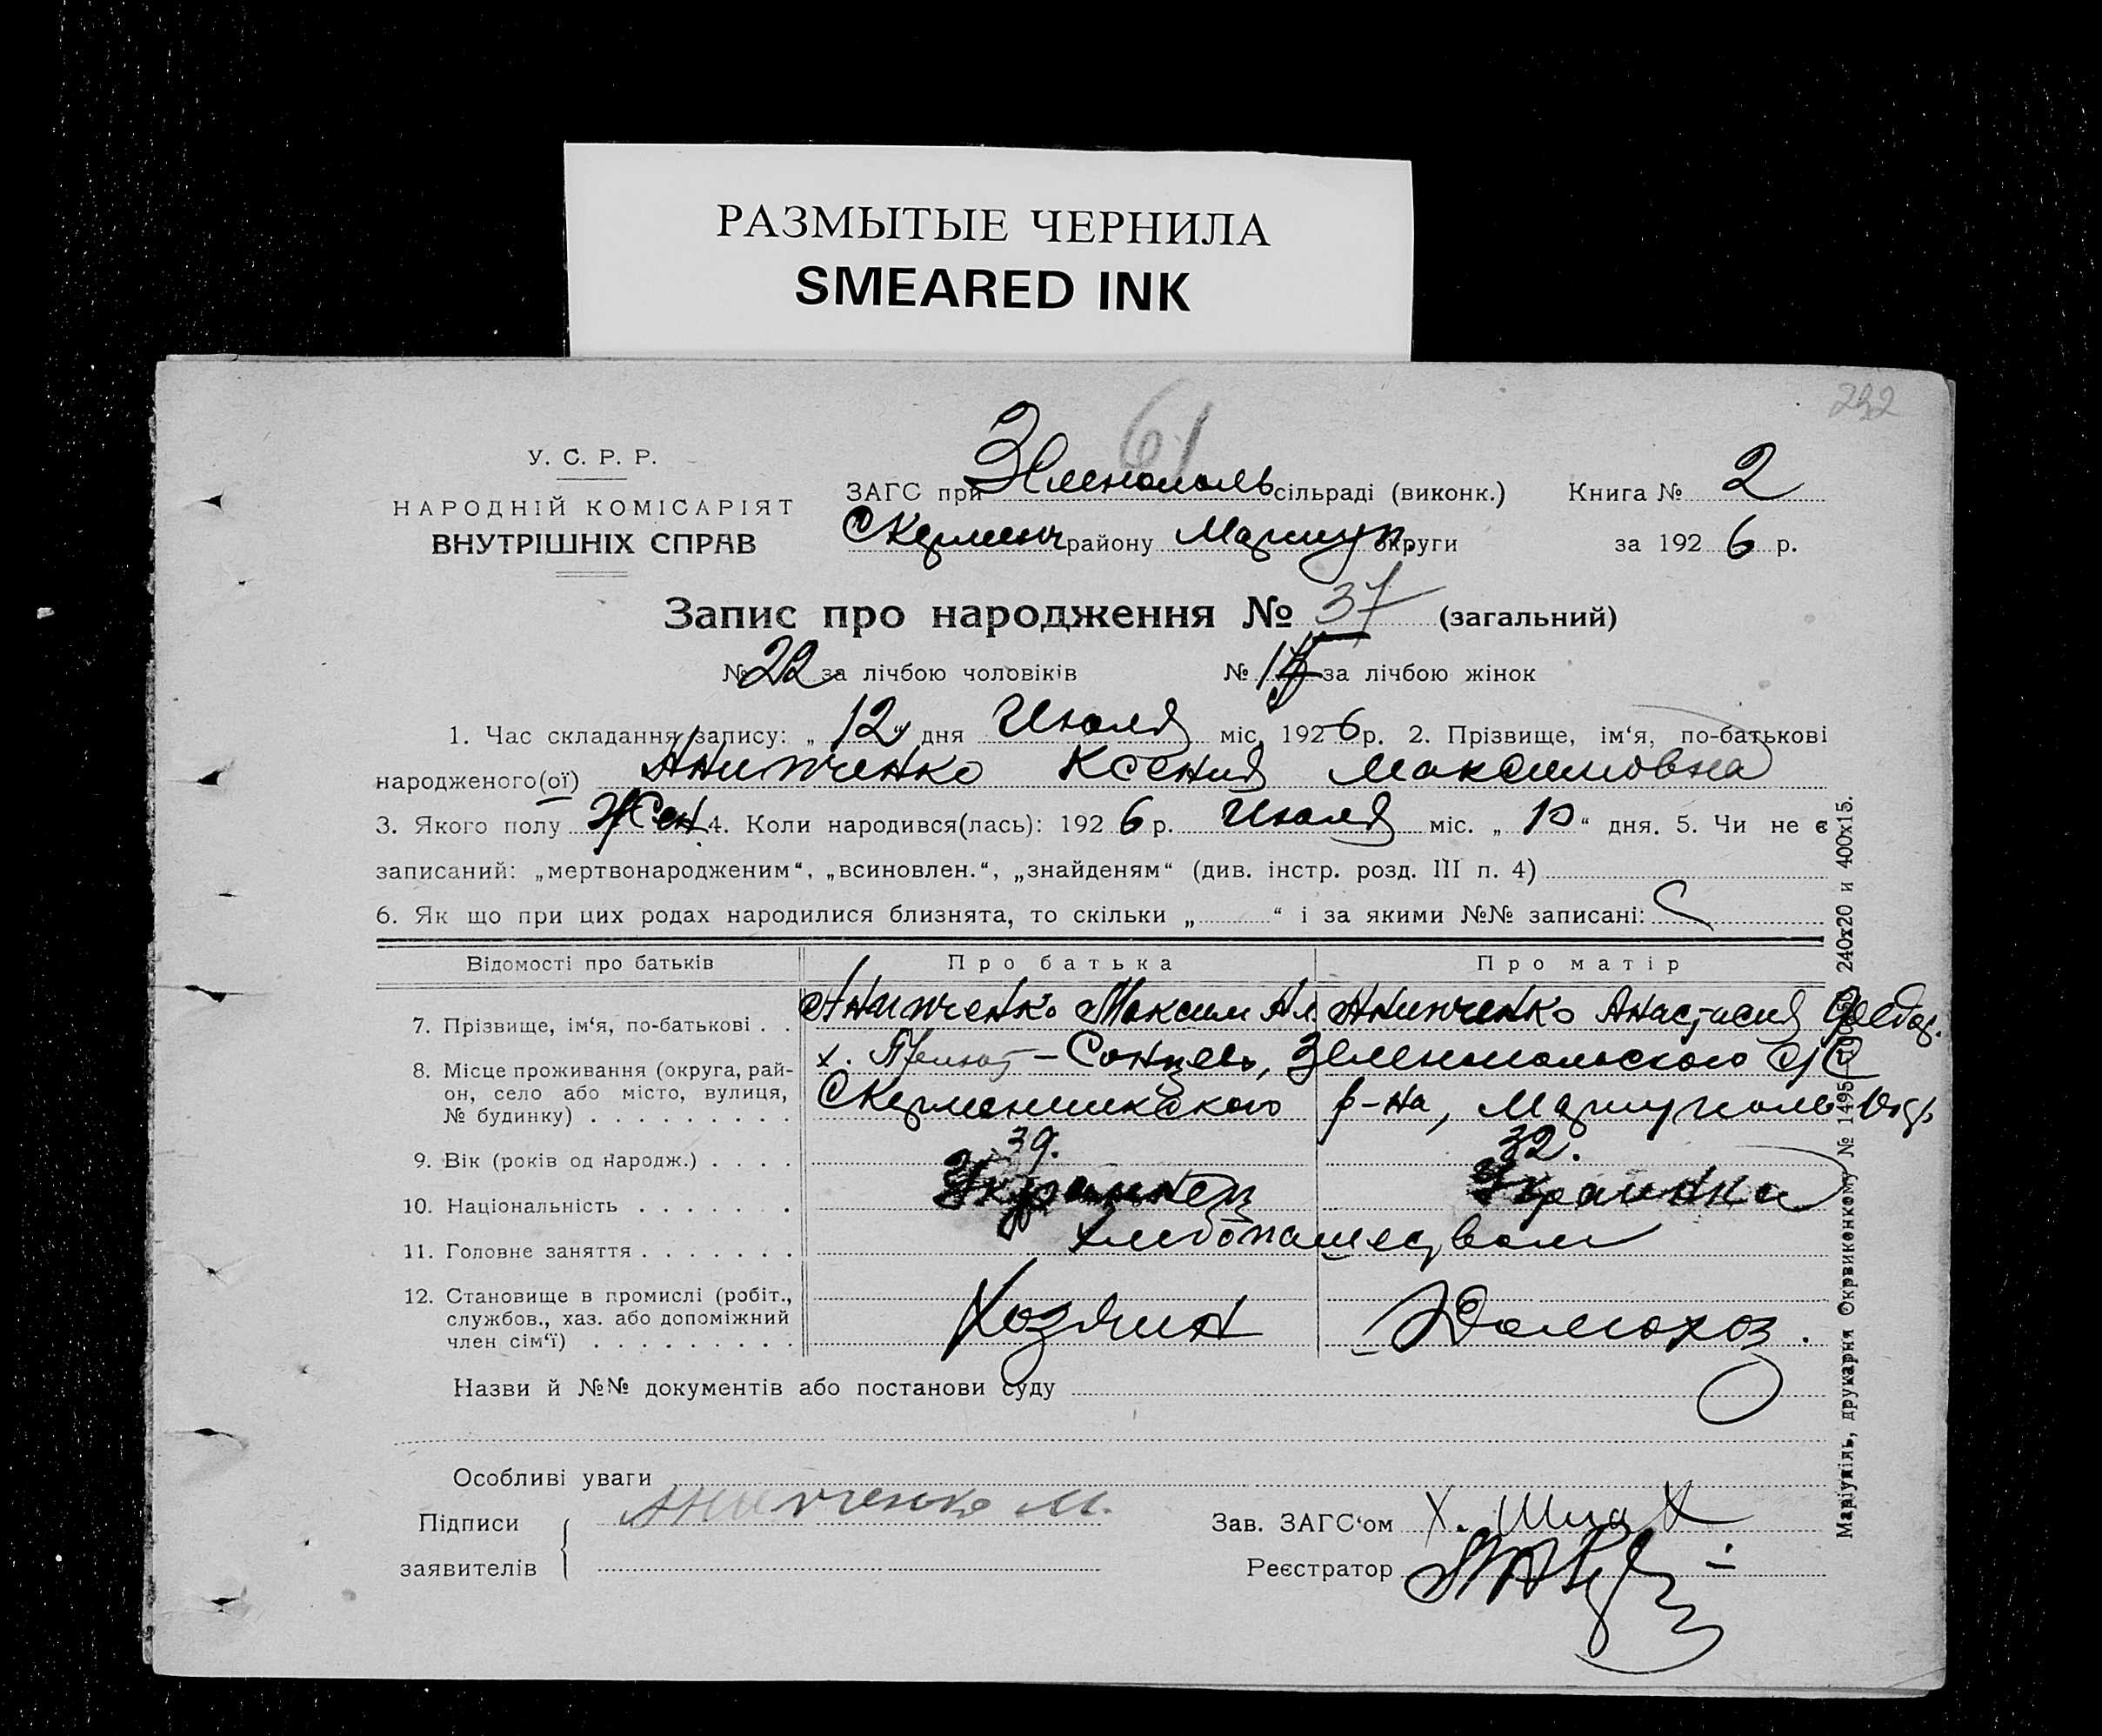 РАЗМЫТЫЕ ЧЕРНИЛА
SMEARED INK
232
61
У. С. Р. Р.
НАРОДНІЙ КОМІСАРІЯТ
ВНУТРІШНІХ СПРАВ
ЗАГС при Зеленополь сільраді (виконк.) Книга № 2
Скермен району Мариуп. округи за 1926 р.
Запис про народження № 37 (загальний)
№ 22 за лічбою чоловіків № 15 за лічбою жінок
1. Час складання запису: „12„ дня Июля міс. 1926 р. 2. Прізвище, ім‘я, по-батькові
народженого(ої) Анипченко Ксения Максимовна
3. Якого полу Жен. 4. Коли народився(лась): 1926 р. Июля міс. „10“ дня. 5. Чи не є
записаний: „мертвонародженим“, „всиновлен.“, „знайденям“ (див. інстр. розд. III п. 4)
6. Як що при цих родах народилися близнята, то скільки „ “ і за якими №№ записані:
Відомості про батьків Про батька Про матір
7. Прізвище, ім‘я, по-батькові . . Анипченко Максим Ал Анипченко Анастасия Федор.
8. Місце проживання (округа, рай-он, село або місто, вулиця, № будинку) . . . . . . . . . х. Приют-Сонцево, Зеленопольского с/С
Скерменшикского р-на, Мариуполь Окр
9. Вік (років од народж.) . . . . 39. 32.
10. Національність . . . . . . . Украинец Украинка
11. Головне заняття . . . . . . . хлебопашеством
12. Становище в промислі (робіт., службов., хаз. або допоміжний член сім‘ї) . . . . . . . . . Хозяин Домохоз.
Назви й №№ документів або постанови суду
Особливі уваги
Підписи Анипченко М. Зав. ЗАГС‘ом Х. Шпак
заявителів Реєстратор
Маріупіль, друкарня Окрвиконкому № 1495 240х20 и 400х15.